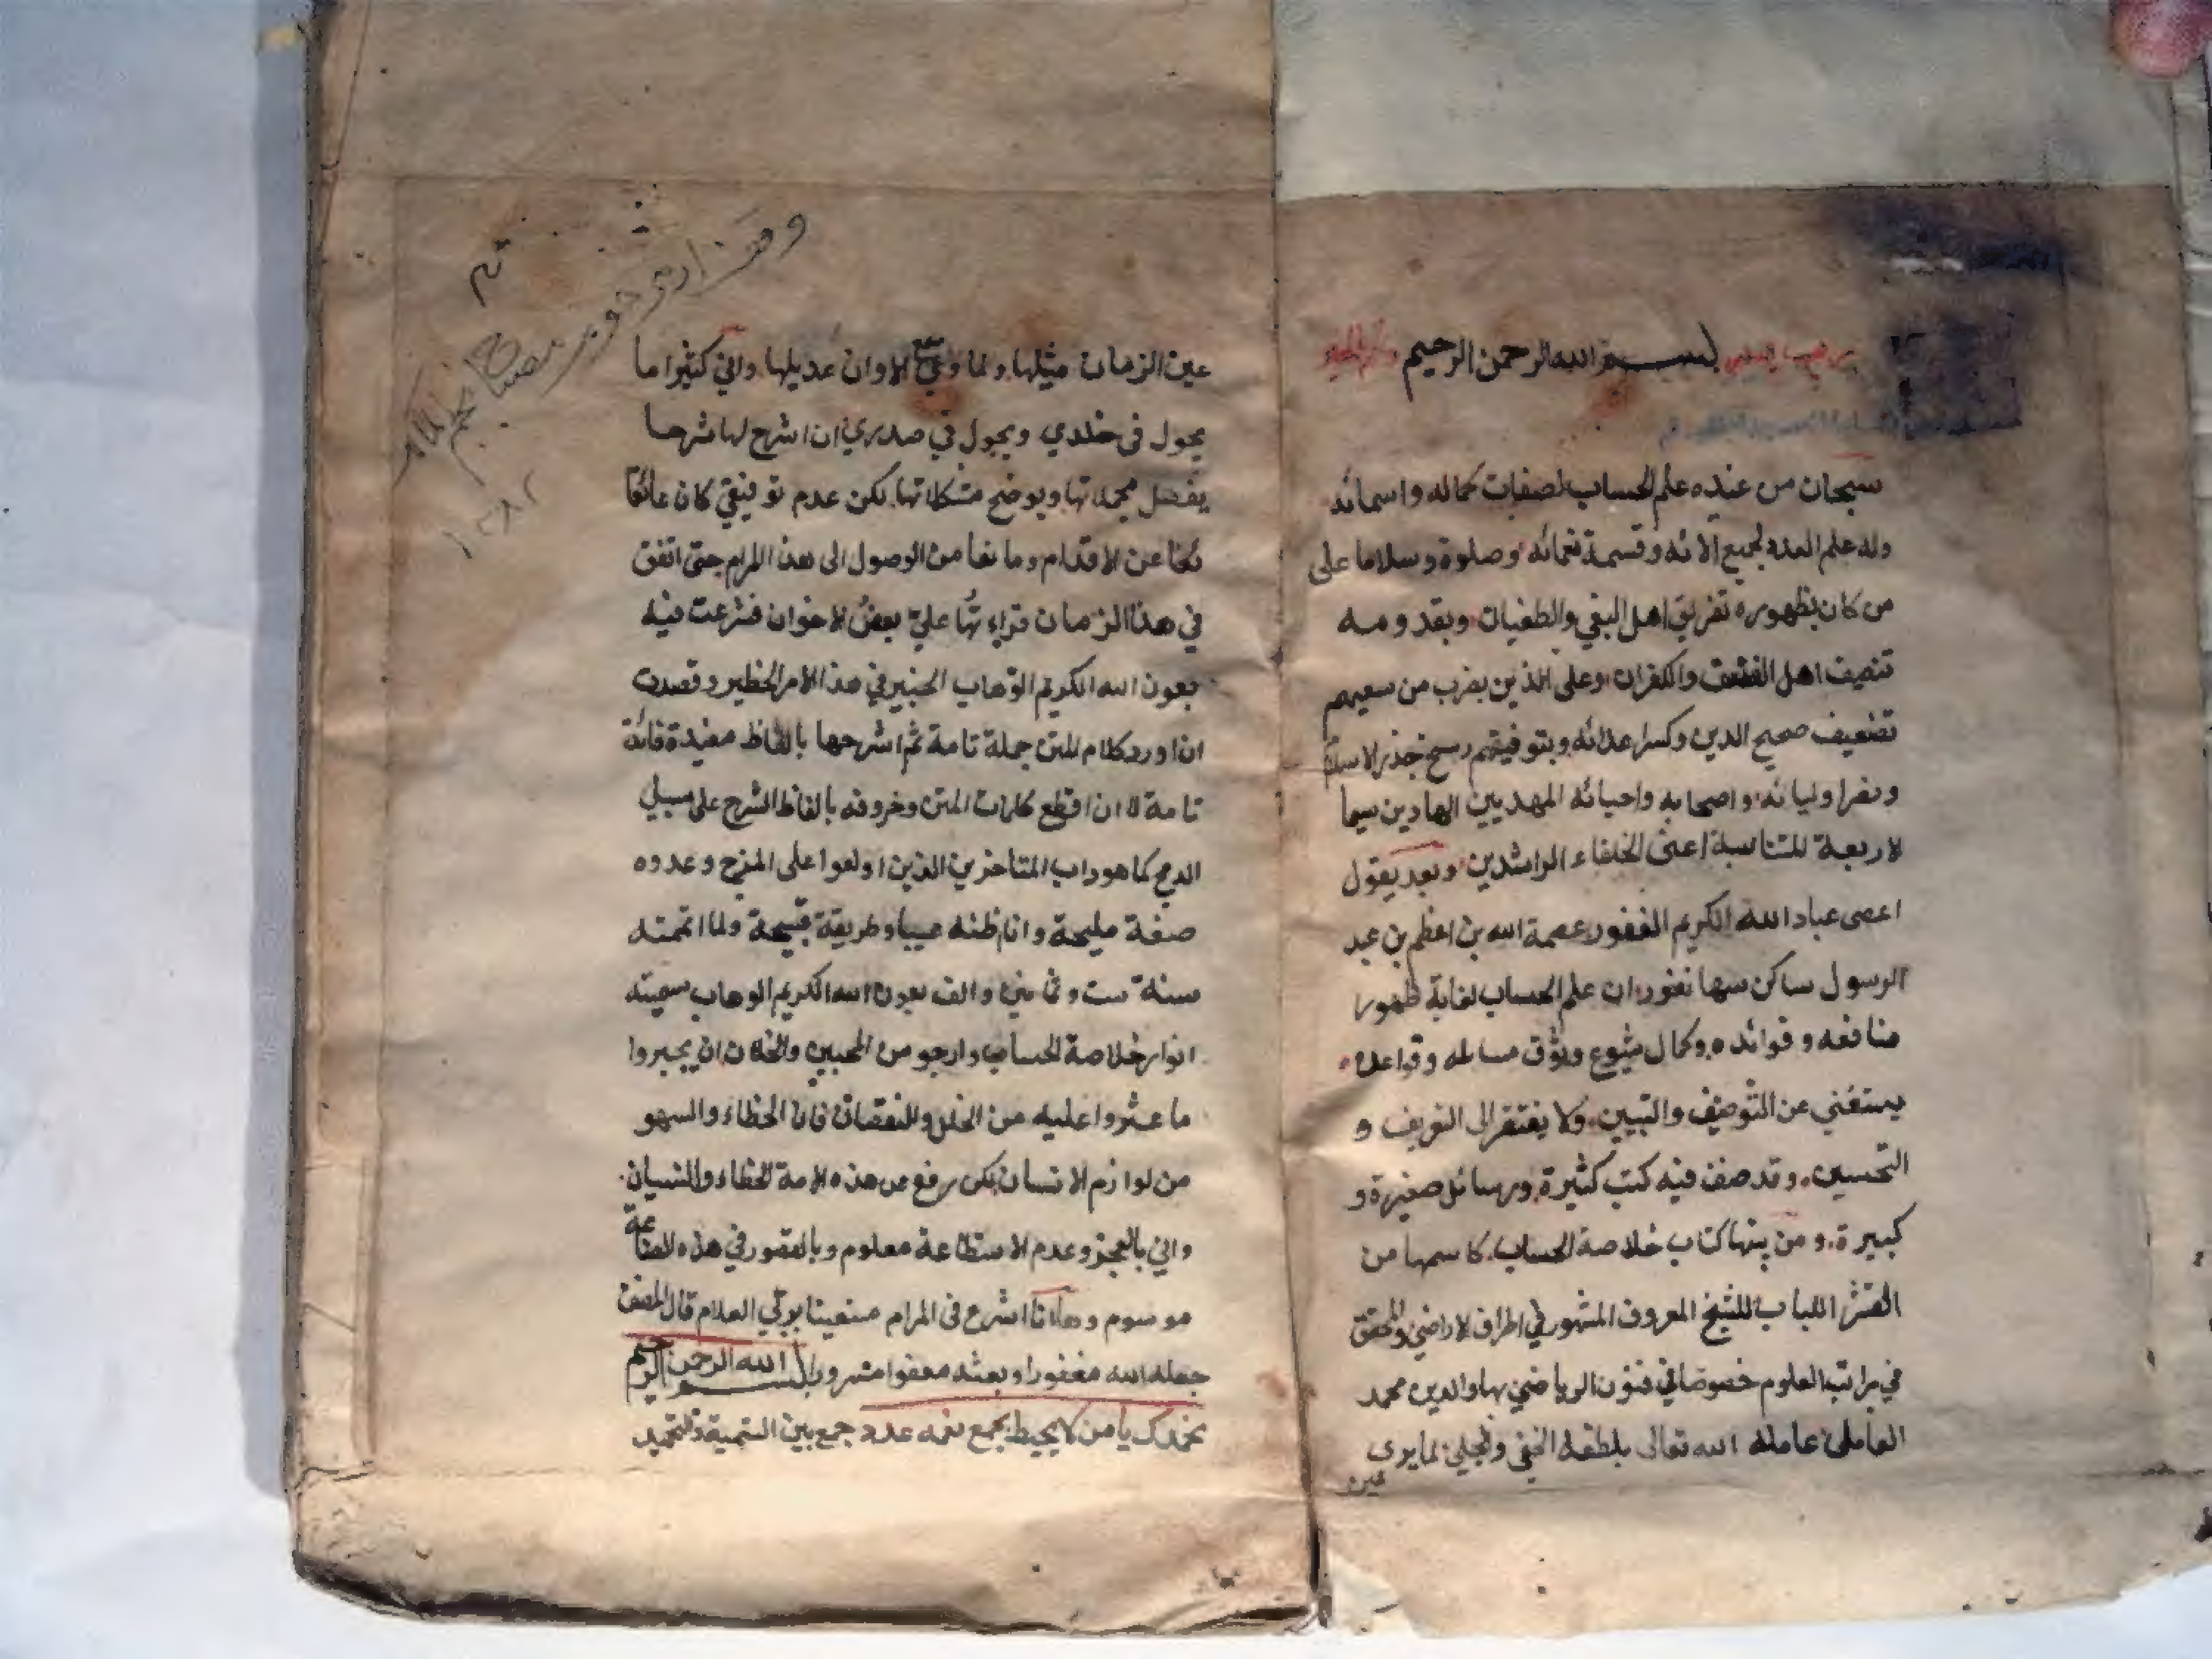 بسم الله الرحمن الرحيم
سبحان من عنده علم الحساب لصفات كماله واسمائه
وله علم العدد لجميع آلائه وقسمة نعمائه وصلوة وسلاما على
من كان بظهوره تفريق اهل البغي والطغيان وبقدومه
تنصيف اهل والكفران وعلى الذين بضرب من سعيهم
تضعيف صحيح الدين وكسر اعدائه وبتوفيقهم رسخ جذر الاسلام
ونصر اوليائه واصحابه واحبائه المهديين الهادين سيما
الاربعة المتناسبة اعنى الخلفاء الراشدين وبعد يقول
اعصى عباد الله الكريم الغفور عصمة الله بن اعظم بن عبد
الرسول ساكن سهارنفور ان علم الحساب لغاية ظهور
منافعه وفوائده وكمال شيوع وثوق مسائله وقواعده
يستغنى عن التوصيف والتبيين ولا يفتقر الى التعريف و
التحسين وقد صنف فيه كتب كثيرة ورسائل صغيرة و
كبيرة ومن بينها كتاب خلاصة الحساب كاسمها من
القشر اللباب للشيخ المعروف المشهور في اطراف الاراضي والمحقق
في مراتب العلوم خصوصا في فنون الرياضي بهاء الدين محمد
العاملى عامله الله تعالى بلطفه الخفي والجلي لما يرى
عين
عين الزمان مثيلها ولما وعى سمع الاوان عديلها واني كثيرا ما
يجول فى خلدي ويجول في صدري ان اشرح لها شرحا
يفصل مجملاتها ويوضح مشكلاتها لكن عدم توفيقي كان عائقا
لنا عن الاقدام ومانعا من الوصول الى هذا المرام حتى اتفق
في هذا الزمان قراءتها علي بعض الاخوان فشرعت فيه
بعون الله الكريم الوهاب الخبير في هذا الامر الخطير وقصدت
ان اورد كلام المتن جملة تامة ثم اشرحها بالفاظ مفيدة فائدة
تامة لا ان اقطع كلمات المتن وحروفه بالفاظ الشرح على سبيل
الدمج كما هو داب المتاخرين الذين اولعوا على المزج وعدوه
صنعة مليحة وانا اظنه عيبا وطريقة قبيحة ولما اتممته
سنة ست وثمانين والف بعون الله الكريم الوهاب سميته
انوار خلاصة الحساب وارجو من المحبين والخلان ان يجبروا
ما عثروا عليه من الخلل والنقصان فان الخطاء والسهو
من لوازم الانسان لكن رفع عن هذه الامة الخطاء والنسيان
واني بالعجز وعدم الاستطاعة معلوم وبالقصور في هذه الصناعة
موسوم وها انا اشرع فى المرام مستعينا بولي العلام قال المصنف
جعله الله مغفورا وبعثه معفوا مسرورا بسم الله الرحمن الرحيم
نحمدك يا من لا يحيط بجمع نعمه عدد جمع بين التسمية والتحميد